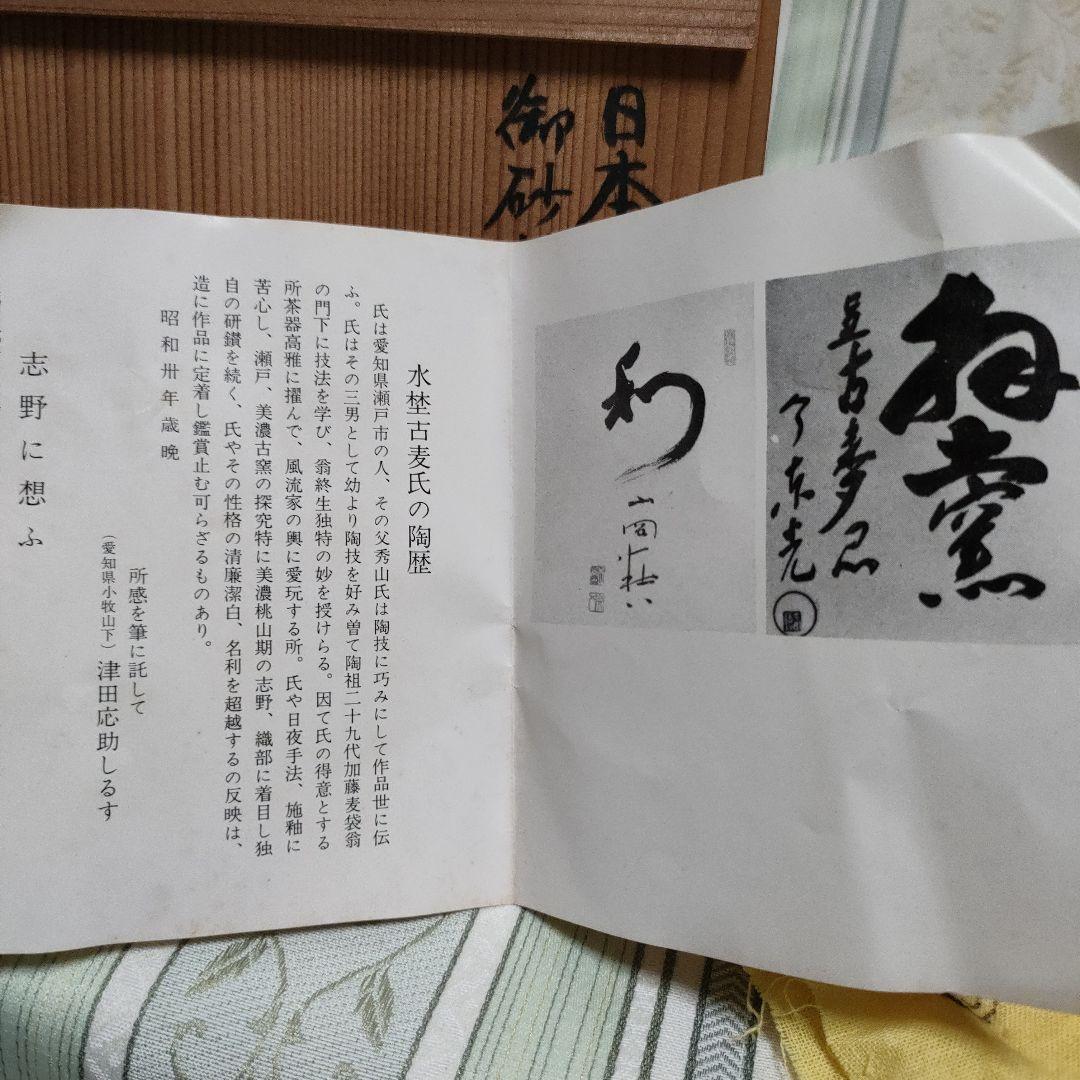 日本
御砂
水埜古麦氏の陶歴
氏は愛知県瀬戸市の人、その父秀山氏は陶技に巧みにして作品世に伝
ふ。氏はその三男として幼より陶技を好み曽て陶祖二十九代加藤麦袋翁
の門下に技法を学び、翁終生独特の妙を授けらる。因て氏の得意とする
所茶器高雅に擢んで、風流家の輿に愛玩する所。氏や日夜手法、施釉に
苦心し、瀬戸、美濃古窯の探究特に美濃桃山期の志野、織部に着目し独
自の研鑚を続く、氏やその性格の清廉潔白、名利を超越するの反映は、
造に作品に定着し鑑賞止む可らざるものあり。
昭和卅年歳晩
所感を筆に託して
(愛知県小牧山下) 津田応助しるす
志野に想ふ
和
今東光